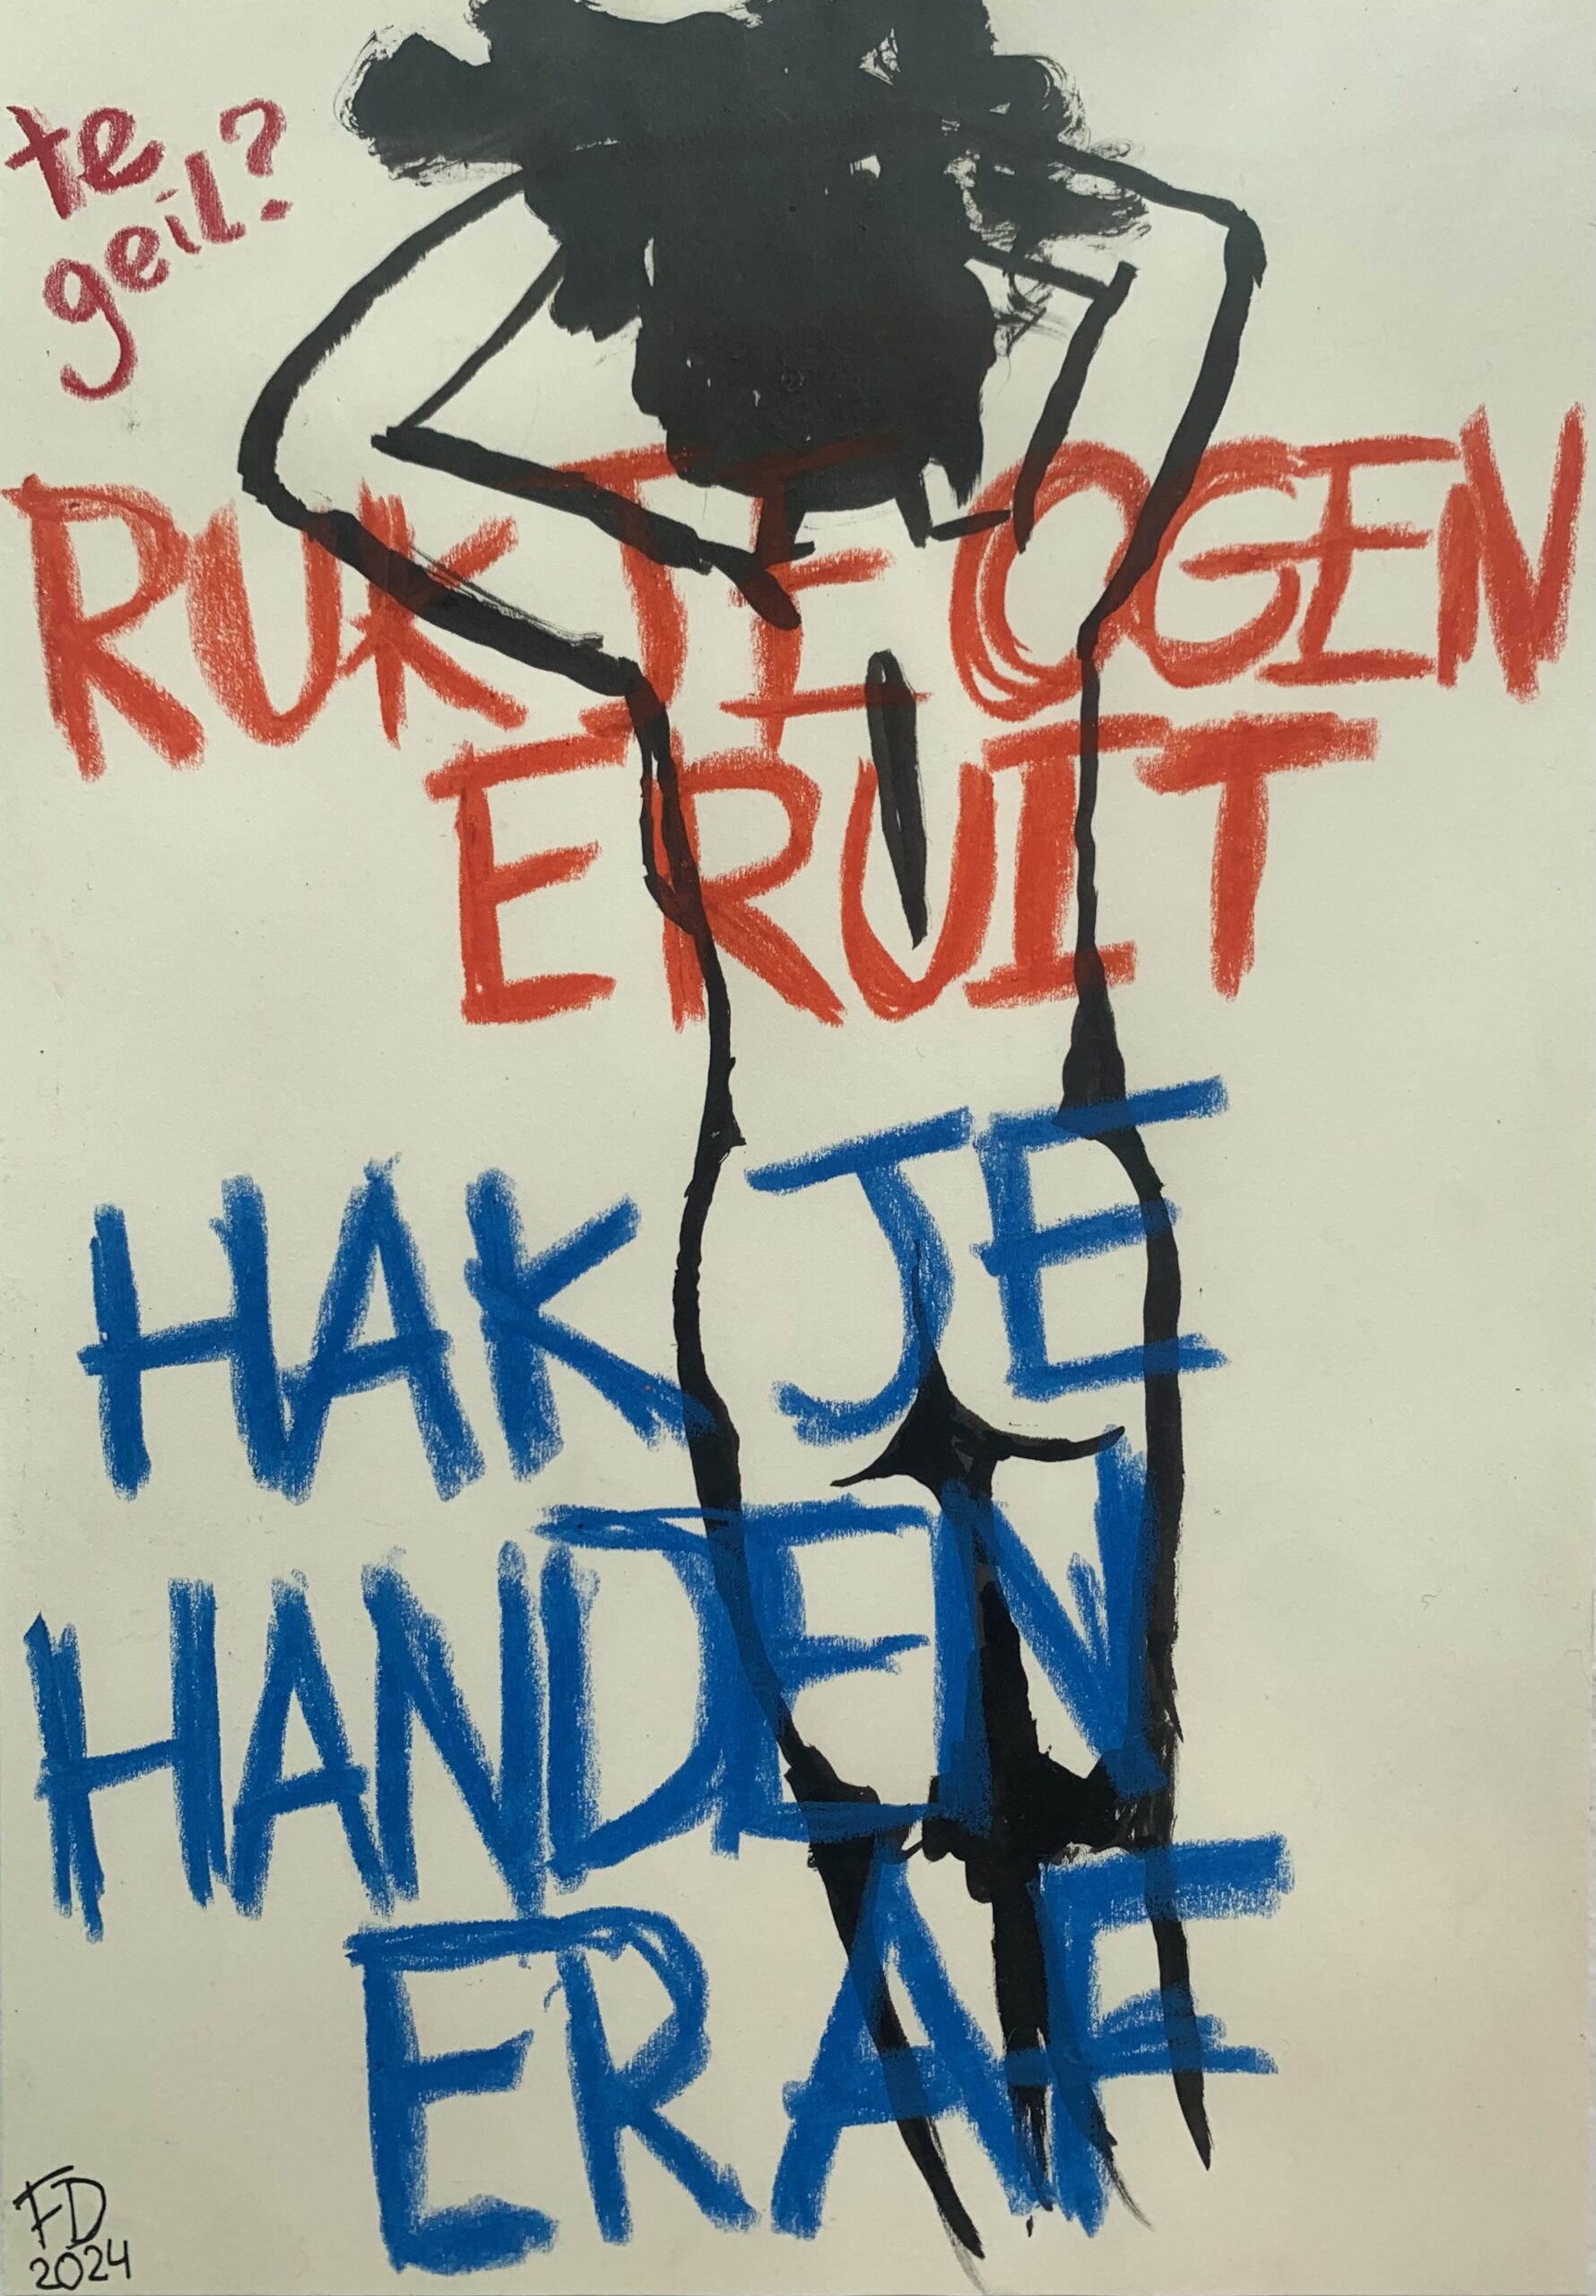 te
geil?
RUK JE OGEN
ERUIT
HAK JE
HANDEN
ERAF
FD
2024